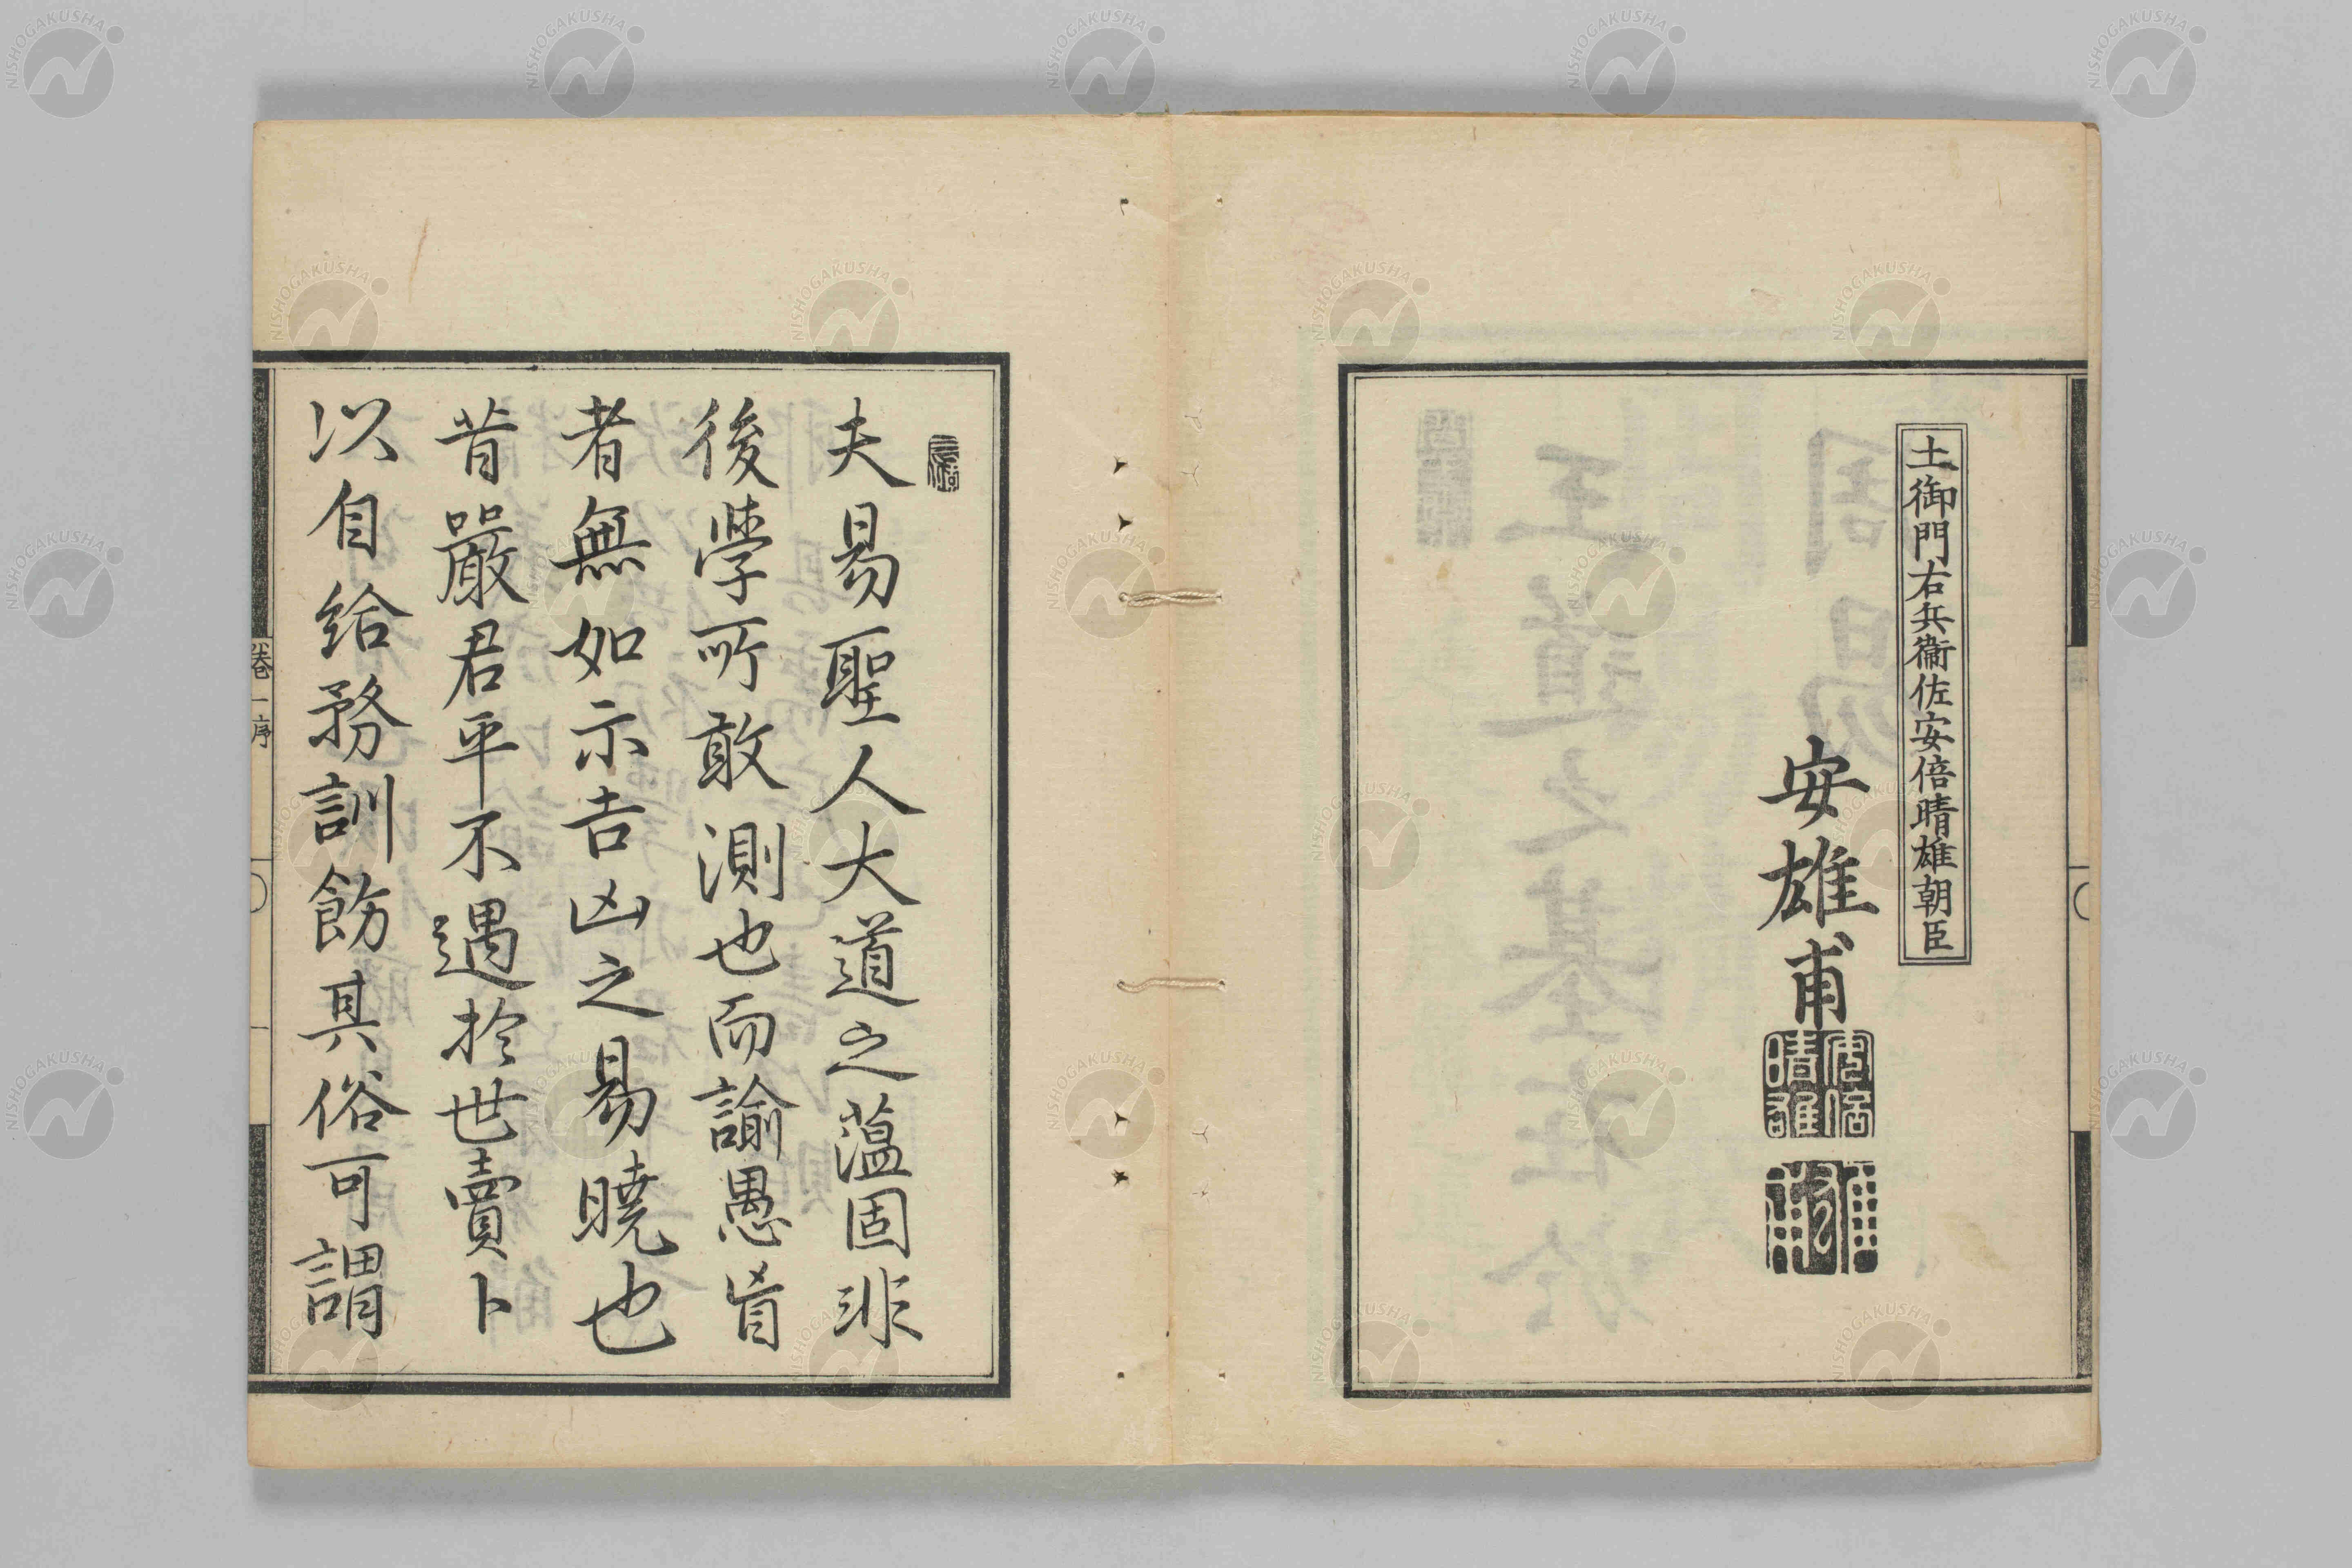 土御門右兵衞佐安倍晴雄朝臣
安雄甫
安倍晴雄
夫易聖人大道之薀固非
後學所敢測也而諭愚昏
者無如示吉凶之易曉也
昔嚴君平不遇於世賣卜
以自給務訓飭其俗可謂
卷一序
一
NISHOGAKUSHA